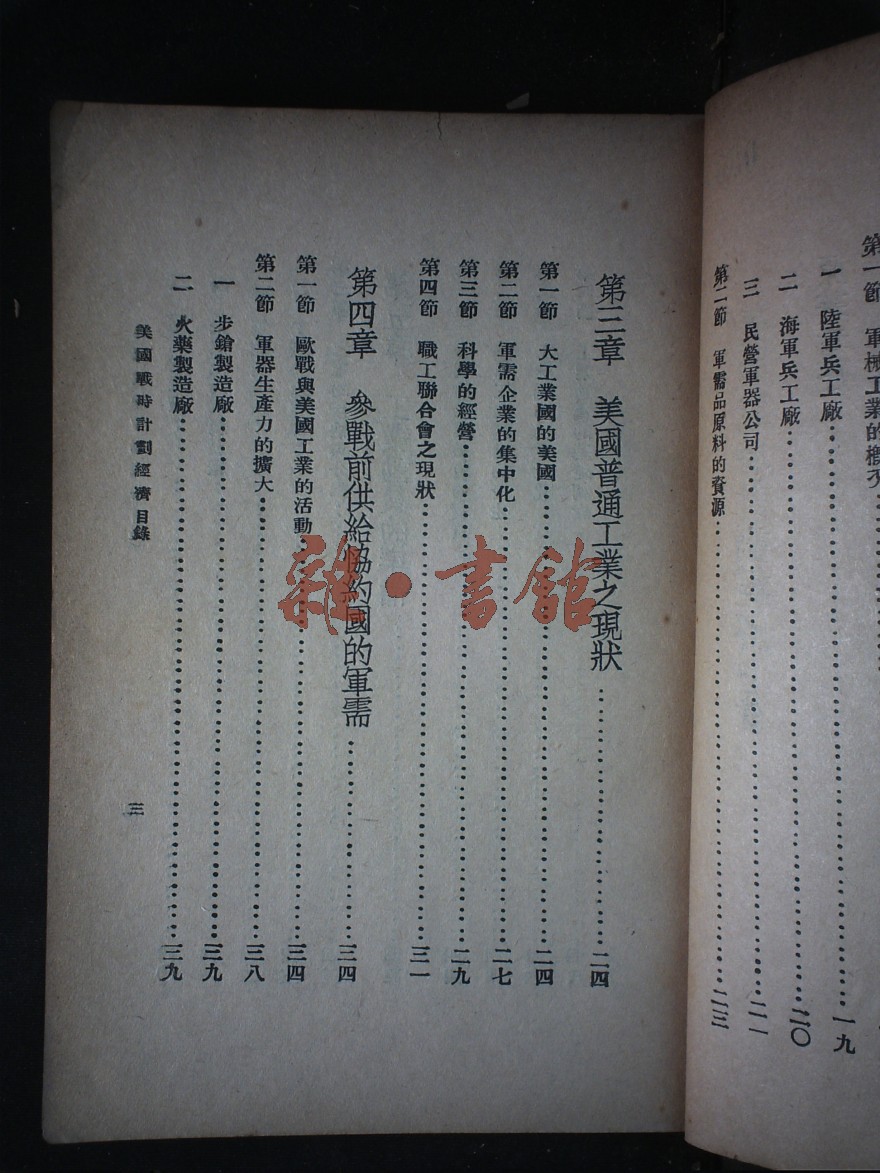 第一節　軍械工業的概
一　陸軍兵工廠……一九
二　海軍兵工廠……二〇
三　民營軍器公司……二一
第二節　軍需品原料的資源……二三
第三章　美國普通工業之現狀……二四
第一節　大工業國的美國……二四
第二節　軍需企業的集中化……二七
第三節　科學的經營……二九
第四節　職工聯合會之現狀……三一
第四章　參戰前供給協約國的軍需……三四
第一節　歐戰與美國工業的活動……三四
第二節　軍器生產力的擴大……三八
一　步鎗製造廠……三九
二　火藥製造廠……三九
美國戰時計劃經濟目錄
三
雜·書館